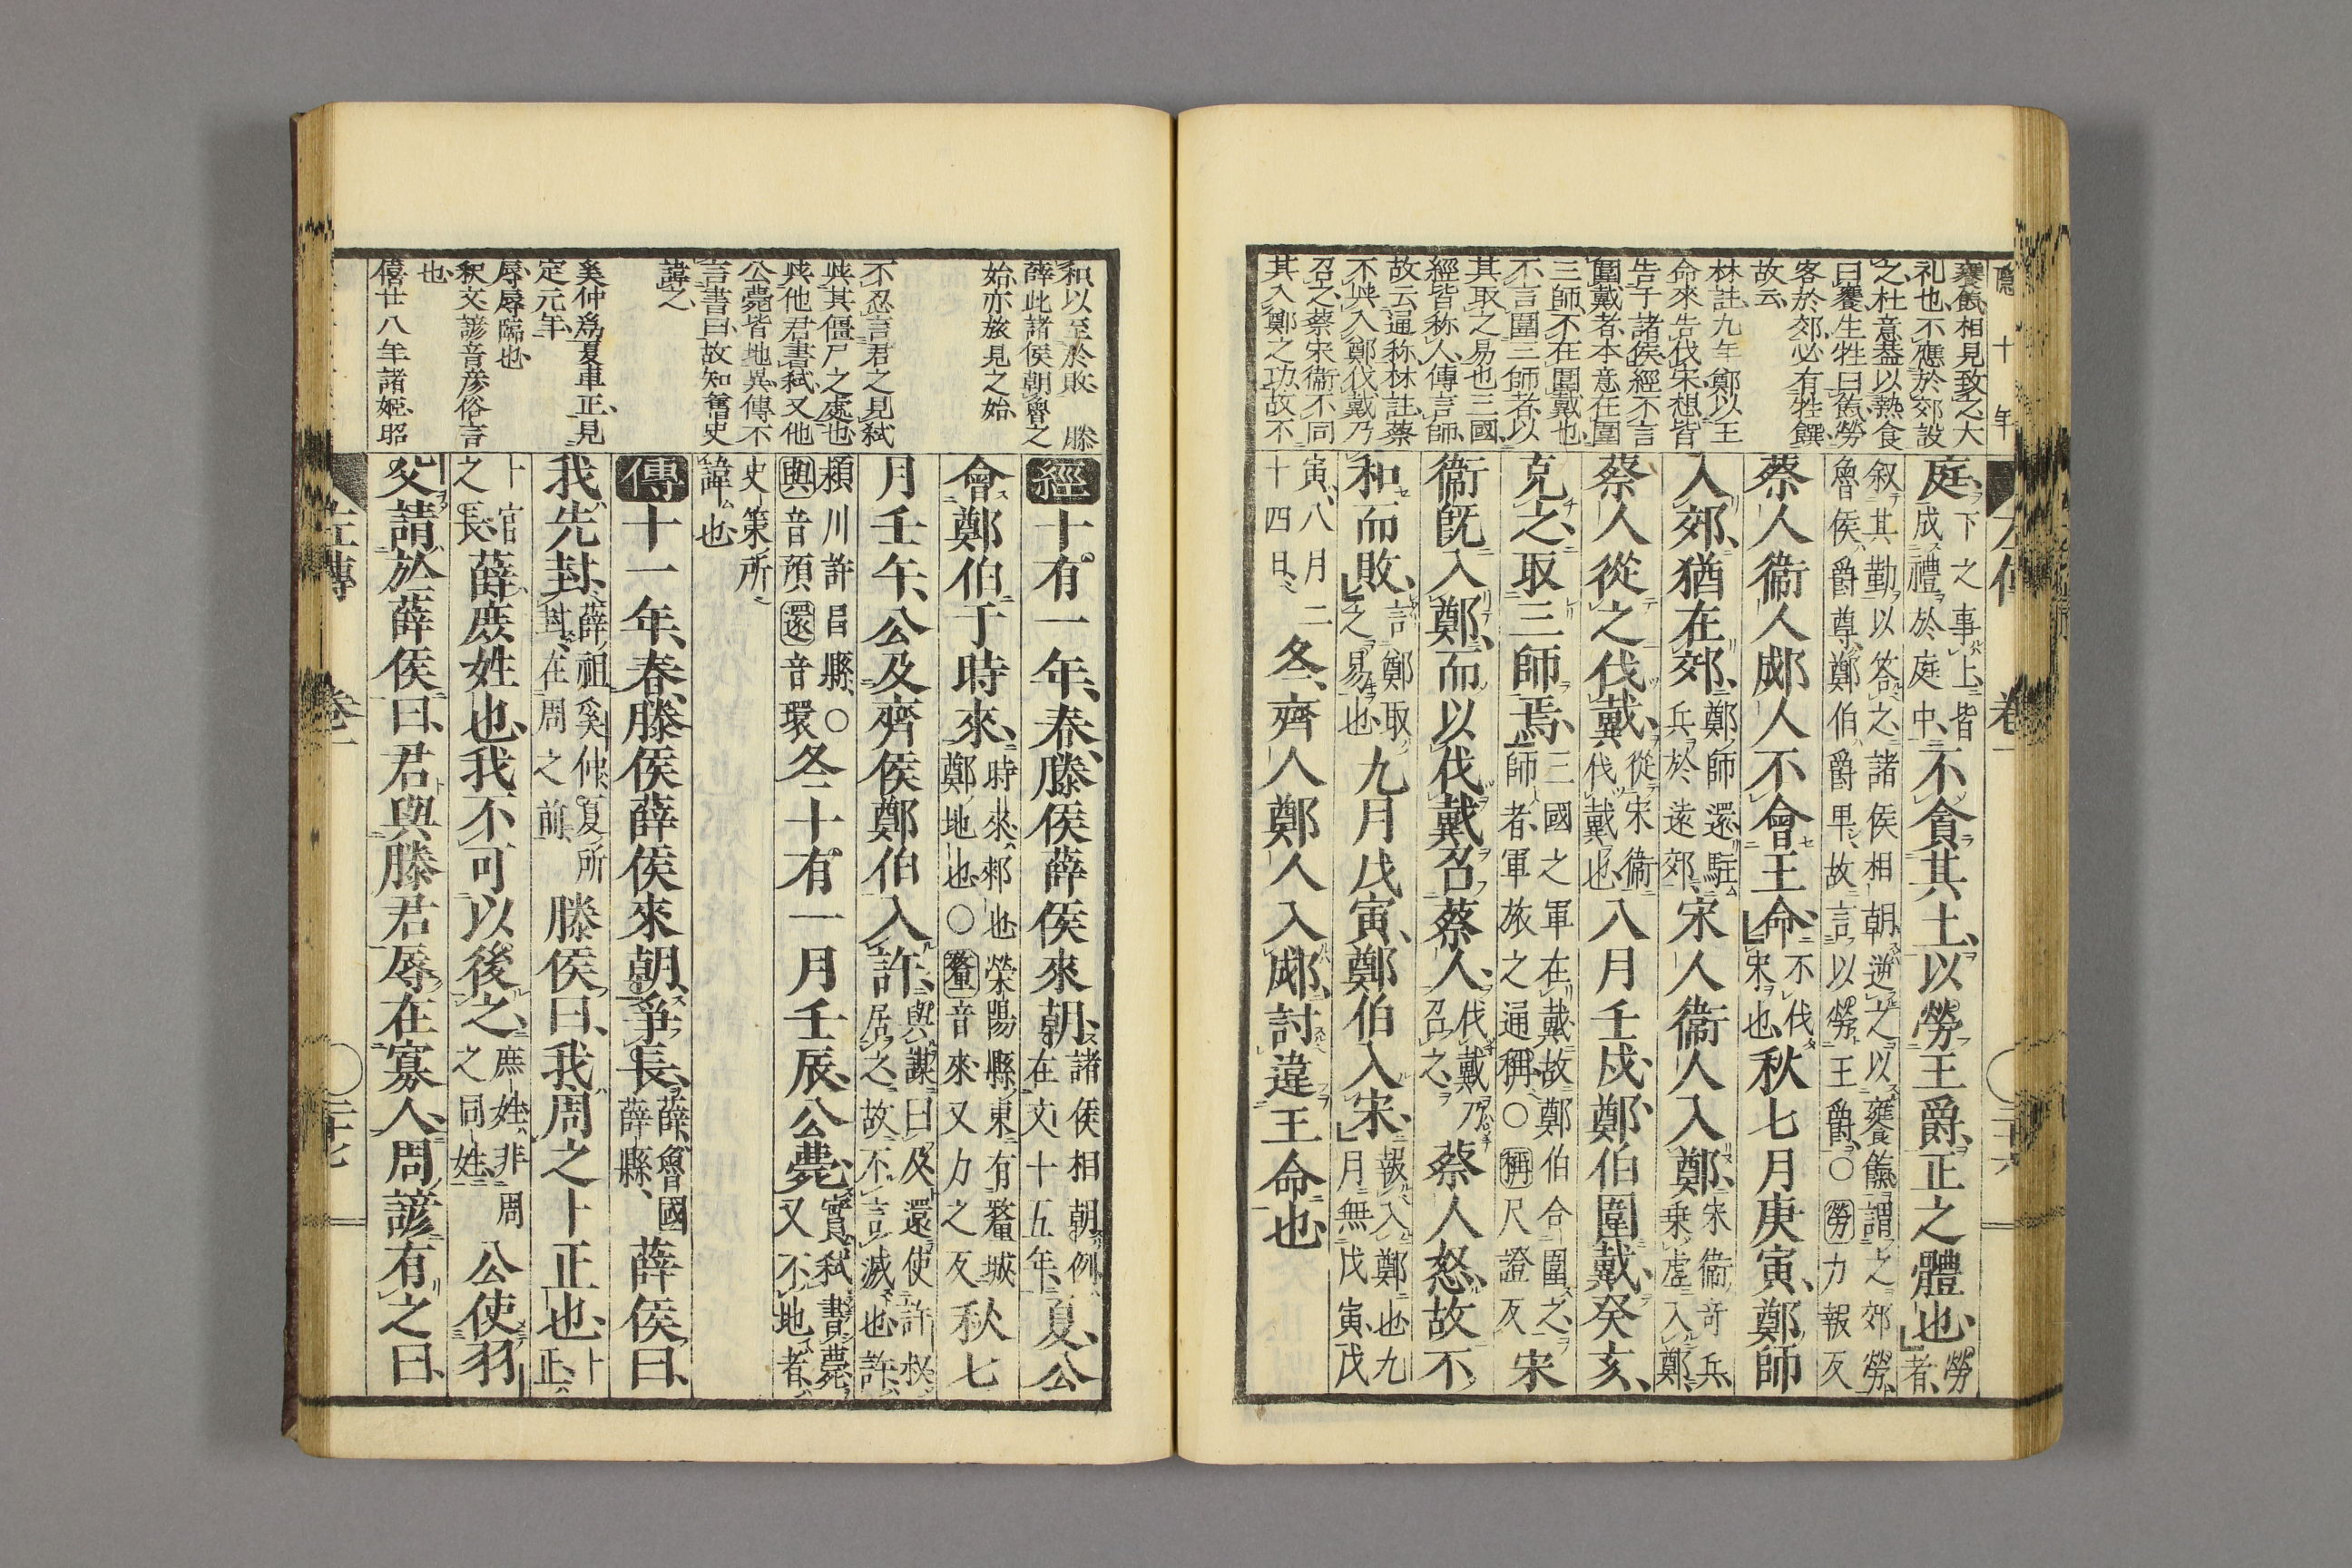 隱十年
饔餼相見致之大
礼也、不應於郊設
之、杜意蓋以熟食
曰饔、生牲曰餼、勞
客於郊、必有牲饌、
故云
林註、九年鄭以王
命來告伐宋、想皆
告于諸侯、經不言
圍戴者、本意在圍
三師、不在圍戴也、
不言圍三師者、以
其取之易也、三國
經皆称人、傳言師、
故云通称、林註、蔡
不與入鄭、伐戴乃
召之、蔡宋衞不同
其入鄭之功、故不
庭、下之事上、皆成禮於庭中、不貪其土、以勞王爵、正之體也、勞者、
叙其勤以答之、諸侯相朝、逆之以饔餼、謂之郊勞、
魯侯爵尊、鄭伯爵卑、故言以勞王爵、〇勞力報反
蔡人衞人郕人不會王命、不伐宋也、秋七月庚寅、鄭師
入郊、猶在郊、鄭師還、駐兵於遠郊、宋人衞人入鄭、宋衞奇兵、乘虛入鄭、
蔡人從之伐戴、從宋衞伐戴也、八月壬戌、鄭伯圍戴、癸亥、
克之、取三師焉、三國之軍在戴、故鄭伯合圍之、師者、軍旅之通稱、〇稱尺證反宋
衞旣入鄭、而以伐戴召蔡人、伐戴乃召之、蔡人怒、故不
和而敗、言鄭取之易也、九月戊寅、鄭伯入宋、報入鄭也、九月無戊寅、戊
寅、八月二十四日、冬、齊人鄭人入郕、討違王命也、
和、以至於敗 滕
薛此諸侯朝魯之
始、亦旅見之始
不忍言君之見弑
與其僵尸之處也
與他君書弑、又他
公薨皆地異、傳不
言書曰、故知舊史
諱之
奚仲爲夏車正、見
定元年
辱、辱臨也
釈文諺音彦俗言
也
僖廿八年諸姫、昭
經十有一年、春、滕侯薛侯來朝、諸侯相朝例、在文十五年、夏、公
會鄭伯于時來、時來、郲也、滎陽縣東有釐城、鄭地也、〇釐音來、又力之反秋七
月壬午、公及齊侯鄭伯入許、與謀曰及、還使許叔居之、故不言滅也、許、
潁川許昌縣、〇與音預、還音環冬十有一月壬辰、公薨、實弑、書薨、又不地者、
史策所諱也
傳十一年、春、滕侯薛侯來朝、爭長、薛、魯國薛縣、薛侯曰、
我先封、薛祖奚仲、夏所封、在周之前、滕侯曰、我周之卜正也、卜正、
卜官之長、薛庶姓也、我不可以後之、庶姓、非周之同姓、公使羽
父請於薛侯曰、君與滕君、辱在寡人、周諺有之曰、
左傳 卷一 〇 二十七